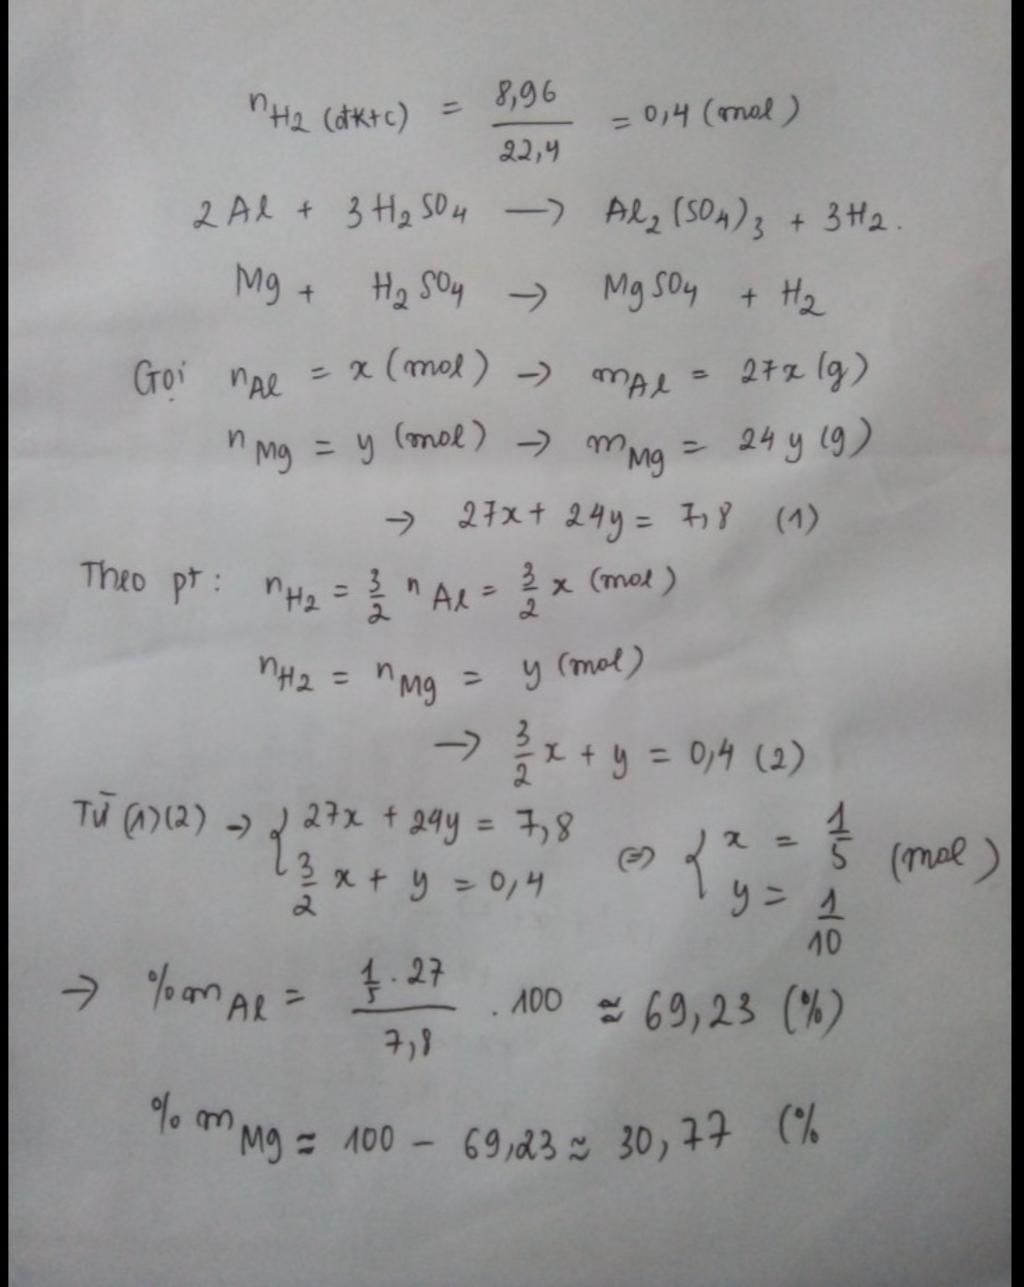 nH2 (đktc) = 8,96/22,4 = 0,4 (mol)
2Al + 3H2SO4 → Al2(SO4)3 + 3H2.
Mg + H2SO4 → MgSO4 + H2
Gọi nAl = x (mol) → mAl = 27x (g)
nMg = y (mol) → mMg = 24y (g)
→ 27x + 24y = 7,8 (1)
Theo pt: nH2 = 3/2 nAl = 3/2 x (mol)
nH2 = nMg = y (mol)
→ 3/2 x + y = 0,4 (2)
Từ (1)(2) → { 27x + 24y = 7,8
3/2 x + y = 0,4 ⇔ { x = 1/5
y = 1/10 (mol)
→ %mAl = (1/5 . 27)/7,8 . 100 ≈ 69,23 (%)
%mMg = 100 - 69,23 ≈ 30,77 (%